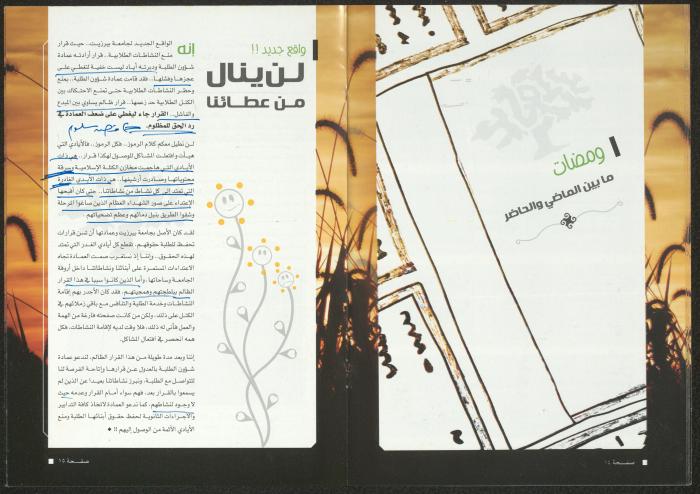 ومضات
ما بين الماضي والحاضر
صفحة ١٤
واقع جديد !!
لن ينال
من عطائنا
إنه
الواقع الجديد لجامعة بيرزيت.. حيث قرار
منع النشاطات الطلابية.. قرار أرادته عمادة
شؤون الطلبة ودبرته أياد ليست خفية لتغطي على
عجزها وفشلها.. فقد قامت عمادة شؤون الطلبة.. بمنع
وحظر النشاطات الطلابية حتى تمنع الاحتكاك بين
الكتل الطلابية حد زعمها.. قرار ظالم يساوي بين المبدع
والفاشل.. القرار جاء ليغطي على ضعف العمادة في
رد الحق للمظلوم.
لن نطيل معكم كلام الرموز.. فكل الرموز.. فالأيادي التي
هيأت وافتعلت المشاكل للوصول لهكذا قرار.. هي ذات
الأيادي التي هاجمت مخازن الكتلة الإسلامية وسرقة
محتوياتها وصادرت أرشيفها.. هي ذات الأيدي الغادرة
التي تمتد إلى كل نشاط من نشاطاتنا.. حتى كان أقبحها
الإعتداء على صور الشهداء العظام الذين صاغوا المرحلة
وشقوا الطريق بنبل دمائهم وعظم تضحياتهم
لقد كان الأصل بجامعة بيرزيت وعمادتها أن تسن قرارات
تحفظ للطلبة حقوقهم.. تقطع كل أيادي الغدر التي تمتد
لهذه الحقوق.. وإننا إذ نستغرب صمت العمادة تجاه
الاعتداءات المستمرة على أبنائنا ونشاطاتنا داخل أروقة
الجامعة وساحاتها، وأما الذين كانوا سببا في هذا القرار
الظالم ببلطجتهم وهمجيتهم.. فقد كان الأجدر بهم إقامة
النشاطات وخدمة الطلبة والتنافس مع باقي زملائهم في
الكتل على ذلك، ولكن من كانت صفحته فارغة من الهمة
والعمل فأنى له ذلك، فلا وقت لديه لإقامة النشاطات، فكل
همه انحصر في افتعال المشاكل.
إننا وبعد مدة طويلة من هذا القرار الظالم، لندعو عمادة
شؤون الطلبة بالعدول عن قرارها وإتاحة الفرصة لنا
للتواصل مع الطلبة، ونبرز نشاطاتنا بعيدا عن الذين لم
يسمعوا بالقرار بعد، فهم سواء أمام القرار وعدمه حيث
لا وجود لنشاطهم، كما ندعو العمادة لاتخاذ كافة التدابير
والإجراءات القانونية لحفظ حقوق أبنائها الطلبة ومنع
الأيادي الآثمة من الوصول إليهم !!
صفحة ١٥